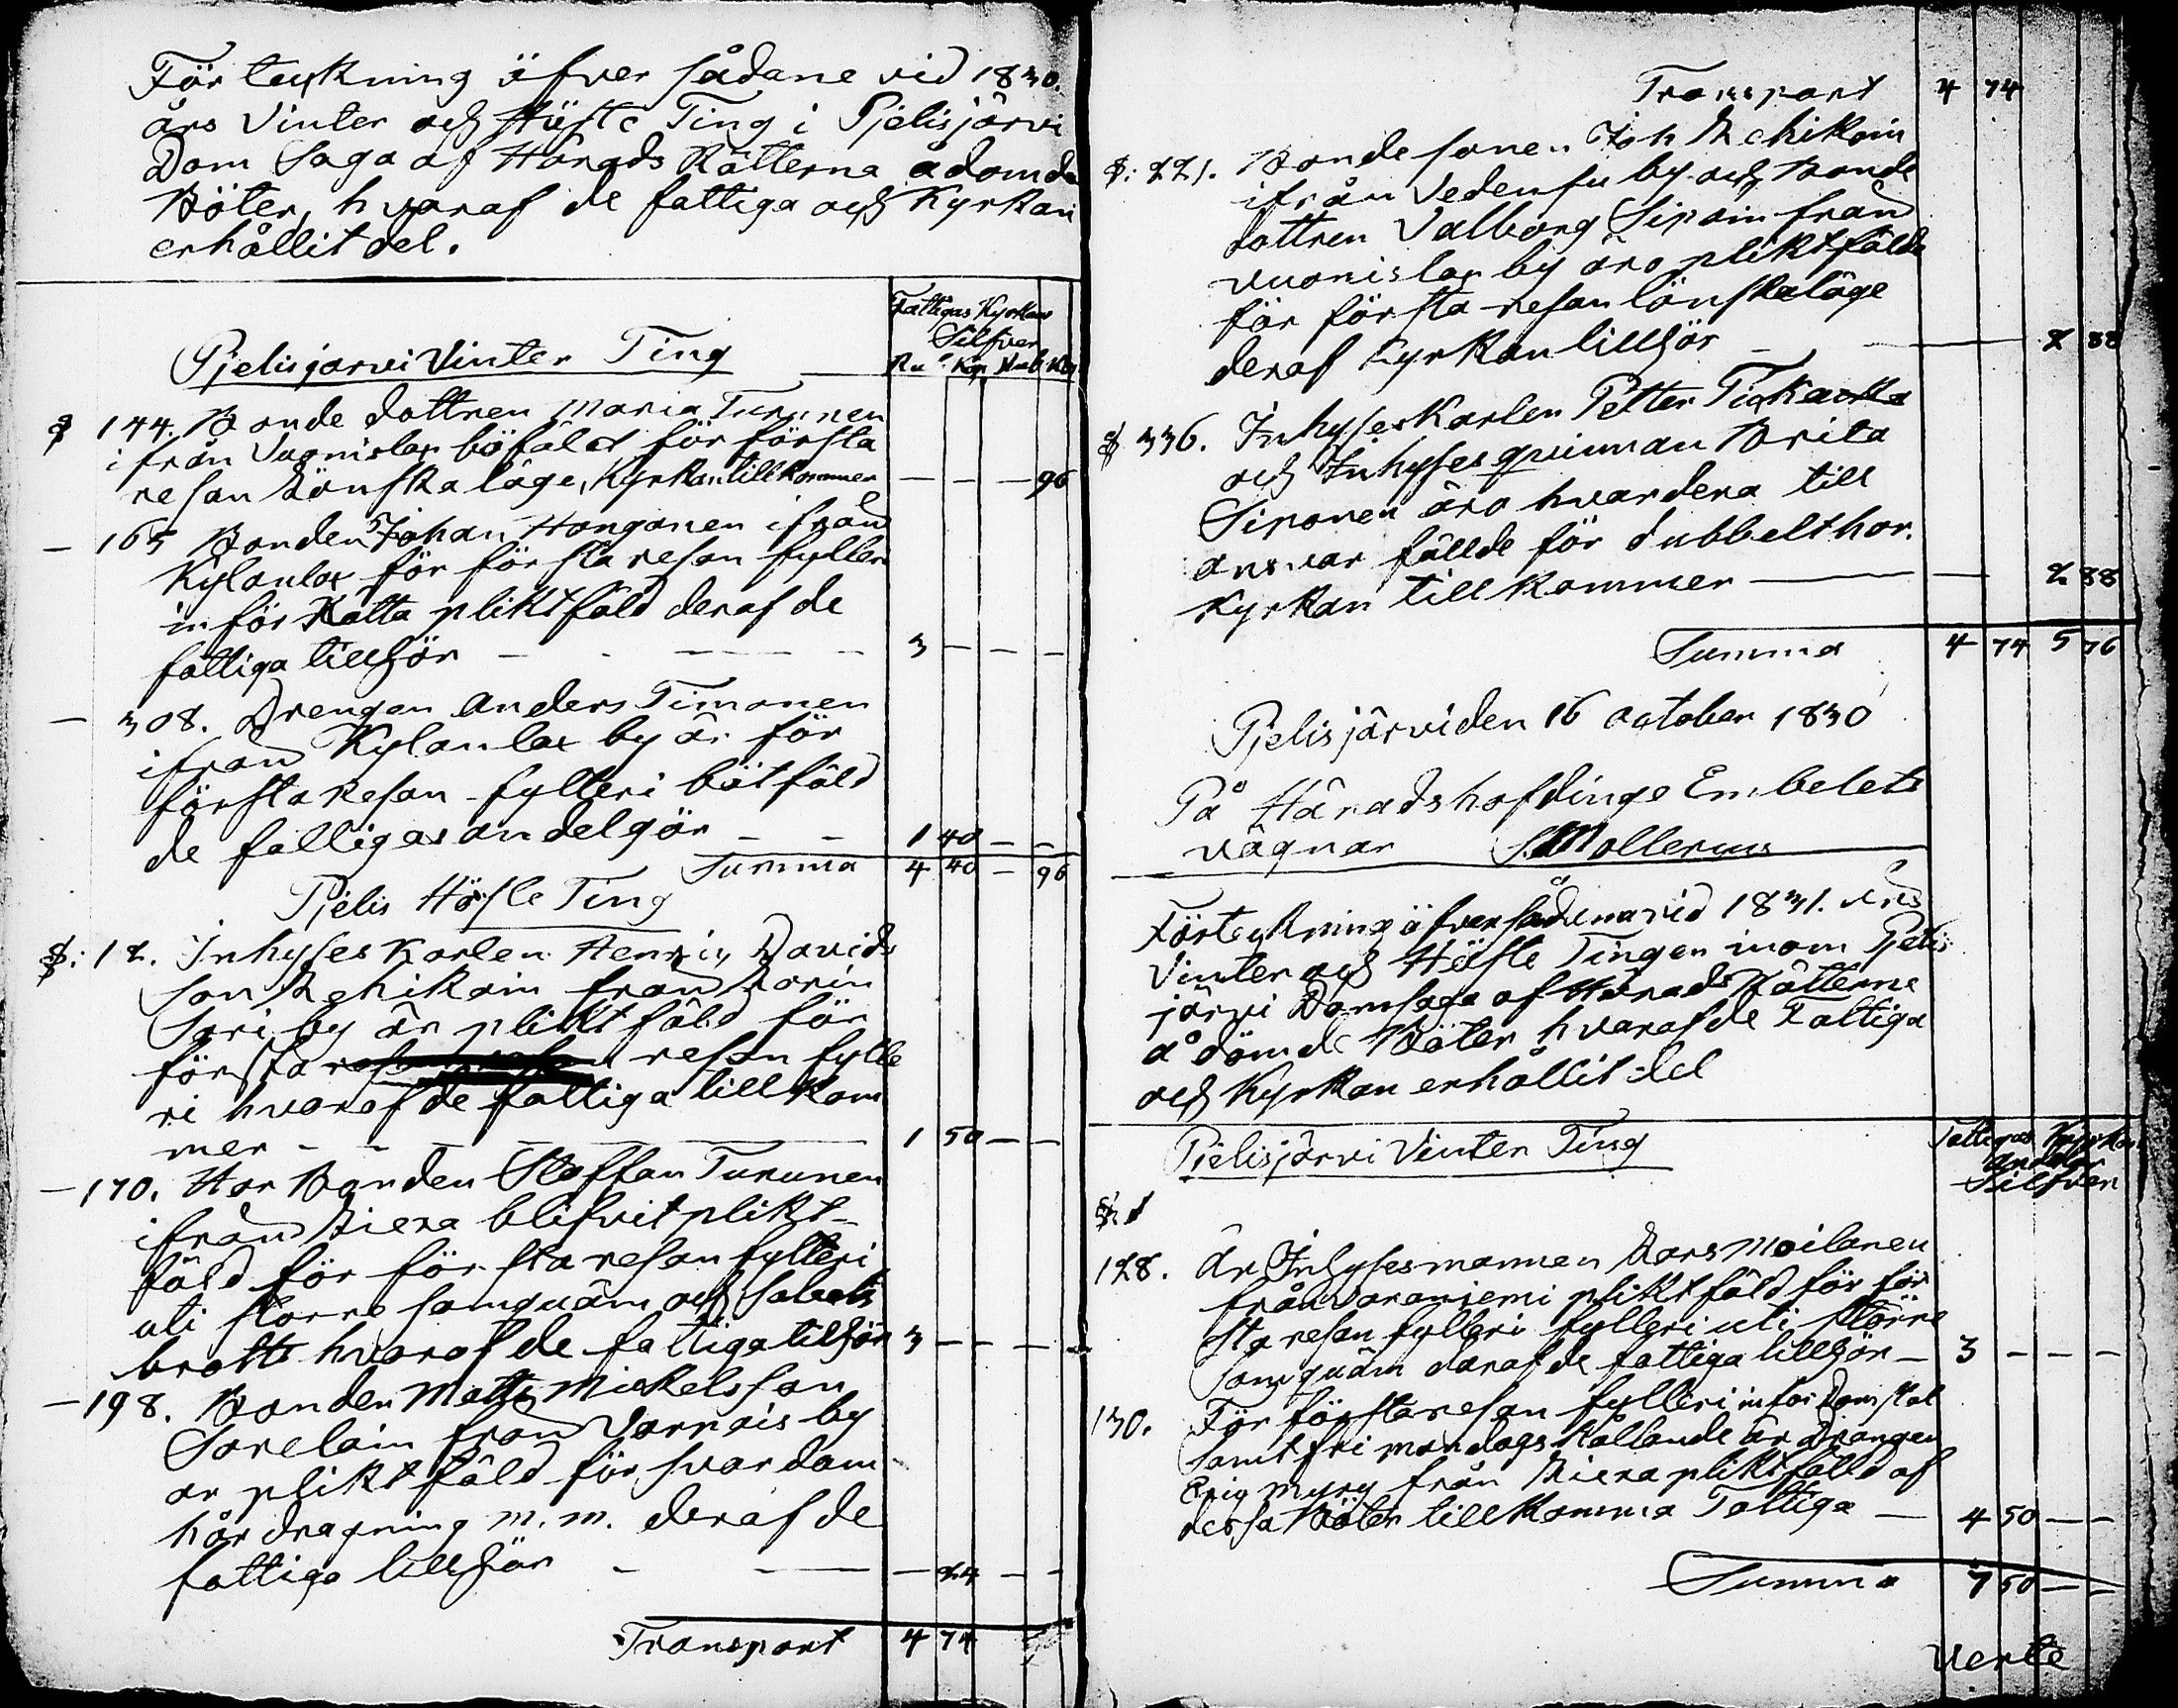 Förteckning öfver sådane vid 1830.
års Vinter och Höste Ting i Pjelisjärvi
Dom Saga af Härads Rätterna ådömde
Böter, hvaraf de fattiga och Kyrkan
erhållit del.
Fattigas Kyrkans
Silfver
Pjelisjärvi Vinter Ting
Rub Kop Rub Kop
§ 144. Bonde dottren Maria Turunen
ifrån Vuonislax böfäld för första
resan Lönskaläge, Kyrkan tillkommer — — — 96
— 165 Bonden Johan Honganen ifrån
Kylanlax för första resan fylleri
inför Rätta pliktfäld deraf de
fattiga tillhör — — — 3 — — —
— 308. Drengen Anders Timonen
ifrån Kylanlax by är för
första Resan fylleri bötfäld
de fattigas andel gör — — 1 40 — —
Summa 4 40 — 96
Pjelis Höste Ting
§: 12. Inhyses Karlen Henric Davids
son Rehikain från
Sari by är pliktfäld för
första resan fylle
ri hvaraf de fattiga tillkom
mer — — — 1 50 — —
— 170. Har Bonden Staffan Turunen
ifrån Liexa blifvit plikt-
fäld för första resan fylleri
uti större samquäm och sabats
brott hvaraf de fattiga tilhör 3 — — —
— 198. Bonden Matts Mickelsson
Sorelain från Varpais by
är pliktfäld för svordom
hårdragning m.m. deraf de
fattiga tillhör — — — 24 — —
Transport 4 74
Transport 4 74
§: 221. Bonde sonen Joh Rehikain
ifrån Vedensu by och Bonde
dottren Valborg Sipain från
Vuonislax by äro pliktfälde
för första resan lönskaläge
deraf Kyrkan tillhör — — 2 88
§ 336. Inhyses Karlen Petter
och Inhyses qvinnan Brita
Siponen äro hvardera till
ansvar fällde för dubbelt hor.
Kyrkan tillkommer — — 2 88
Summa 4 74 5 76
Pjelisjärvi den 16 october 1830
På Häradshöfdinge Embetets
vägnar Mollerius
Förteckning öfver sådena vid 1831. års
Vinter och Höste Tingen inom Pjelis
järvi Domsaga af Härads Rätterne
ådömde Böter hvaraf de Fattiga
och Kyrkan erhållit del
Pjelisjärvi Vinter Ting
Fattigas Kyrkan
andelar
Silfver
§
128. Är Inhysesmannen Lars Moilanen
från Varaniemi pliktfäld för för
sta resan fylleri fylleri uti större
samquäm daraf de fattiga tillhör — 3 — — —
130. För första resan fylleri inför Domstol
samt fri mondags hållande är Drängen
Eric Myry från Liexa pliktfälld af
dessa Böter tillkomma Fattiga — 4 50 — —
Summa 7 50 — —
Verte